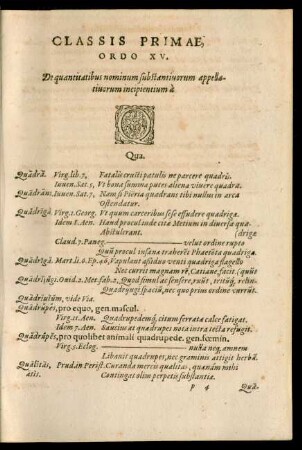 CLASSIS PRIMAE,
ORDO XV.
De quantitatibus nominum substantiuorum appella-
tiuorum incipientium à
Q
Qua.
Quădră. Virg. lib. 7. Fatalis crusti patulis nec parcere quadris.
Iuuen. Sat. 5. Vt bona summa putes aliena viuere quadra.
Quădrans. Iuuen. Sat. 7. Nam si Pieria quadrans tibi nullus in arca
Ostendatur.
Quădrīgă. Virg. 1. Georg. Vt quum carceribus sese effudere quadrigæ.
Idem 8. Aen. Haud procul inde citæ Metium in diuersa qua-
Distulerant. [drigæ
Claud. 7. Paneg. velut ordine rupto
Quū procul insana traheret Phaetōta quadriga.
Quădrigă. Mart. li. 8. Ep.
Nec currit magnam
Quadriiugi spaciū, nec quo prius ordine currūt.
Quădriuĭum, vide Via.
Quădrŭpēs, pro equo, gen. mascul.
Virg. 11. Aen. Quadrupedemq́; citum ferrata calce fatigat.
Idem 7. Aen. Saucius at quadrupes nota intra tecta refugit.
Quădrŭpēs, pro quolibet animali quadrupede. gen. fœmin.
Virg. 5. Eclog. nulla neq; amnem
Libauit quadrupes, nec graminis attigit herbā.
Quālĭtās, Prudan Perist. Curanda mercis qualitas, quanam mihi
atis. Contingat olim perpetis substantiæ.
p 4 Quă-